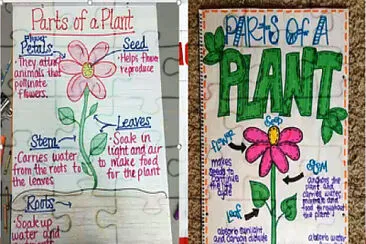 Parts of a Plant
Flower
Petals
• They attract
animals that
pollinate
flowers.
Seed
• Helps flower
reproduce
Leaves
• Soak in
light and air
to make food
for the plant
Stem
• Carries water
from the roots to
the leaves
Roots
• Soak up
water and
PARTS OF A
PLANT
Seed
flower
makes
seeds to
continue
the life
cycle
stem
the plant
and carries water,
minerals and
food throughout
the plant
leaf
absorb sunlight
and carbon dioxide
absorb water